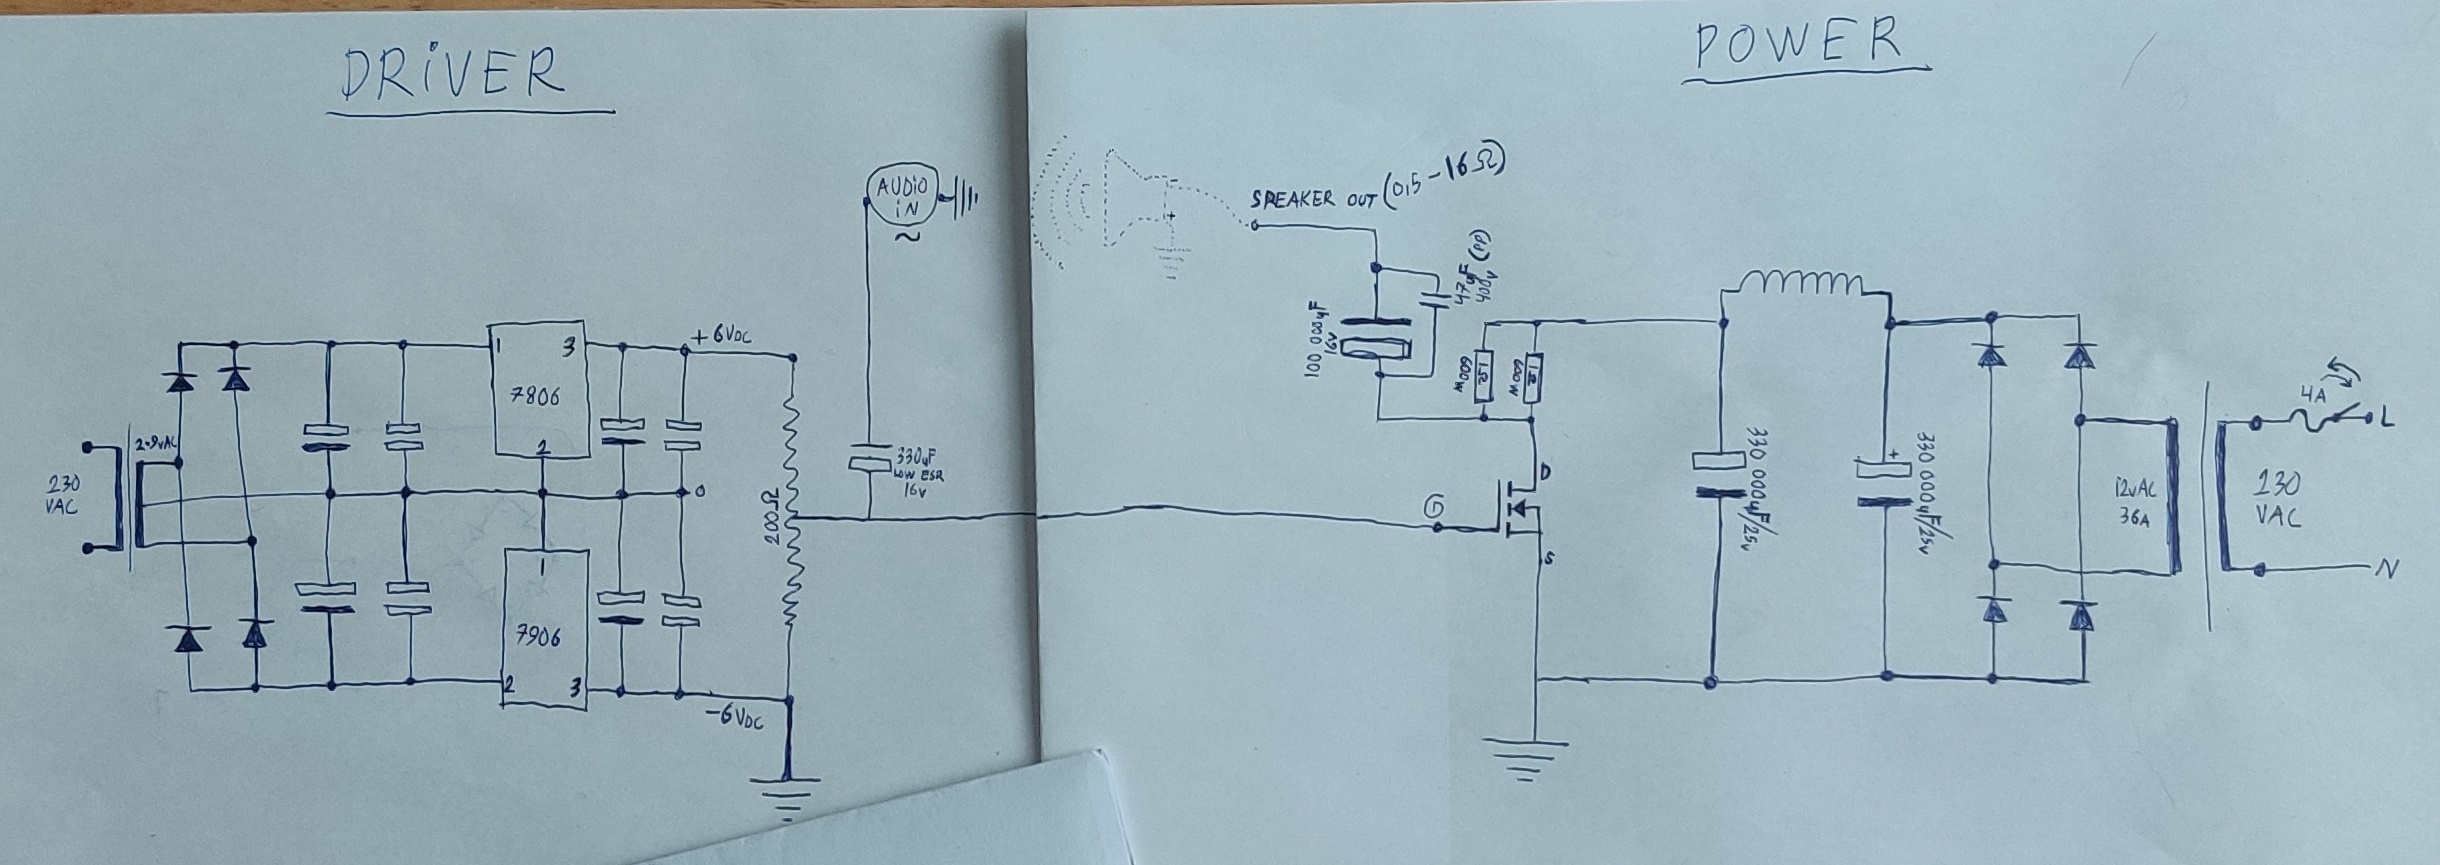 DRiVER
230
VAC
2×9vAC
1
3
7806
2
+6VDC
0
1
7906
2
3
-6VDC
200Ω
AUDiO
iN
~
330µF
LOW ESR
16V
POWER
SPEAKER OUT (0,5-16Ω)
-
+
100 000µF
16V
47µF (PP)
400V
1Ω
600W
1Ω
600W
G
D
S
330 000µF/25v
+
330 000µF/25v
12vAC
36A
230
VAC
4A
L
N